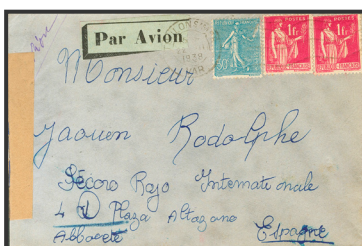 Par Avion
1938
POSTES
1Fr
POSTES
1Fr
50c
Monsieur
Jaouen Rodolphe
Sécoro Rojo Internationale
4 D Plaza Altozano
Albacete Espagne